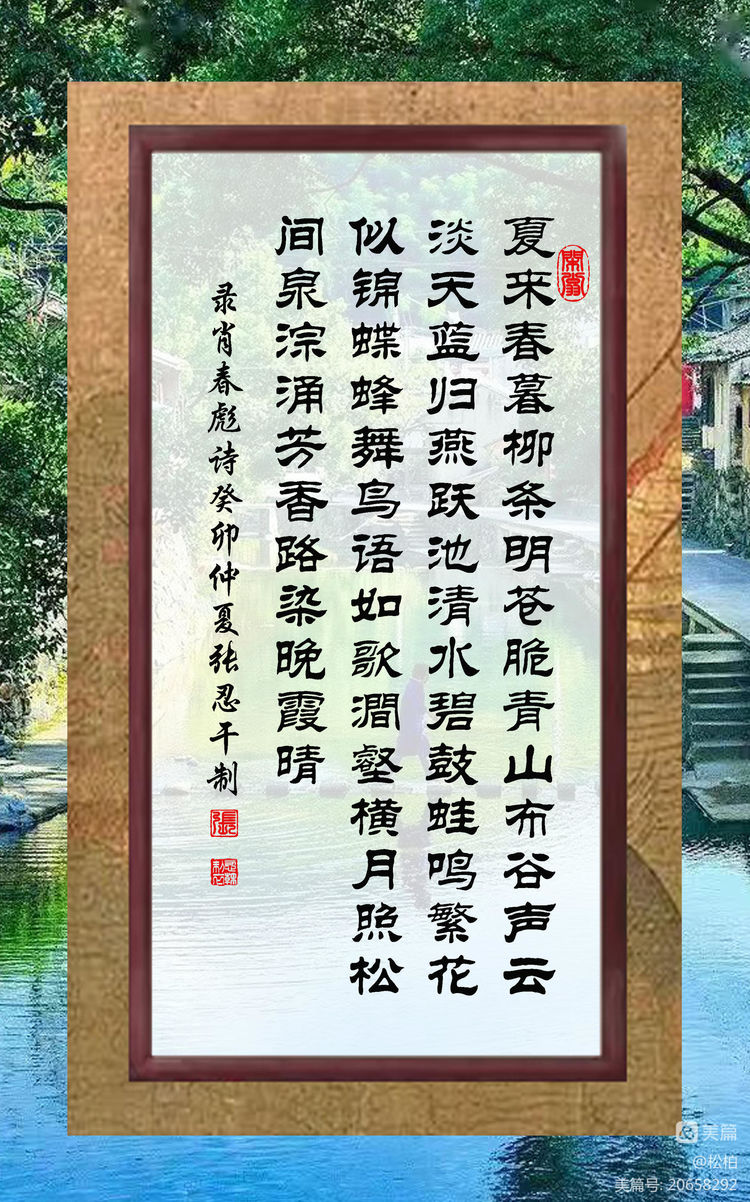 夏来春暮柳条明苍脆青山布谷声云
淡天蓝归燕跃池清水碧鼓蛙鸣繁花
似锦蝶蜂舞鸟语如歌涧壑横月照松
间泉淙涌芳香路染晚霞晴
录肖春彪诗癸卯仲夏张忍干制
張
美篇
@松柏
美篇号: 20658292